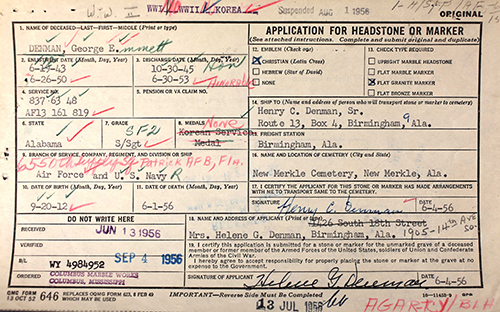 WWII KOREA
Suspended AUG 1 1956
ORIGINAL
1. NAME OF DECEASED—LAST—FIRST—MIDDLE (Print or type)
DENMAN, George Emmett
APPLICATION FOR HEADSTONE OR MARKER
(See attached instructions. Complete and submit original and duplicate)
2. ENLISTMENT DATE (Month, Day, Year)
6-19-43
6-26-50
3. DISCHARGE DATE (Month, Day, Year)
10-30-45
6-30-53 Honorable
12. EMBLEM (Check one)
CHRISTIAN (Latin Cross)
HEBREW (Star of David)
NONE
13. CHECK TYPE REQUIRED
UPRIGHT MARBLE HEADSTONE
FLAT MARBLE MARKER
FLAT GRANITE MARKER
FLAT BRONZE MARKER
4. SERVICE NO.
837 63 48
AF13 161 819
5. PENSION OR VA CLAIM NO.
6. STATE
Alabama
7. GRADE
SF2
S/Sgt
8. MEDALS
None
Korean Service
Medal
14. SHIP TO (Name and address of person who will transport stone or marker to cemetery)
Henry C. Denman, Sr.
Route 13, Box 4, Birmingham, Ala.
15. FREIGHT STATION
Birmingham, Ala.
9. BRANCH OF SERVICE, COMPANY, REGIMENT, AND DIVISION OR SHIP
6550th Patrick AFB, Fla.
Air Force and U. S. Navy R
16. NAME AND LOCATION OF CEMETERY (City and State)
New Merkle Cemetery, New Merkle, Ala.
10. DATE OF BIRTH (Month, Day, Year)
9-20-12
11. DATE OF DEATH (Month, Day, Year)
6-1-56
17. I CERTIFY THE APPLICANT FOR THIS STONE OR MARKER HAS MADE ARRANGEMENTS WITH ME TO TRANSPORT SAME TO THE CEMETERY.
SIGNATURE Henry C. Denman
DATE
6-4-56
DO NOT WRITE HERE
RECEIVED JUN 13 1956
18. NAME AND ADDRESS OF APPLICANT (Print or type)
1426 South 18th Street
Mrs. Helene G. Denman, Birmingham, Ala. 1905-14th Ave So.
WY 4984952 SEP 4 1956
19. I certify this application is submitted for a stone or marker for the unmarked grave of a deceased member or former member of the Armed Forces of the United States, soldiers of Union and Confederate Armies of the Civil War.
I hereby agree to accept responsibility for properly placing the stone or marker at the grave at no expense to the Government.
ORDERED
COLUMBUS MARBLE WORKS
COLUMBUS, MISSISSIPPI
SIGNATURE OF APPLICANT Helene G. Denman
DATE
6-4-56
QMC FORM
13 OCT 52 646
REPLACES OQMG FORM 623, 8 FEB 43
WHICH MAY BE USED
IMPORTANT—Reverse Side Must Be Completed
13 JUL 1956